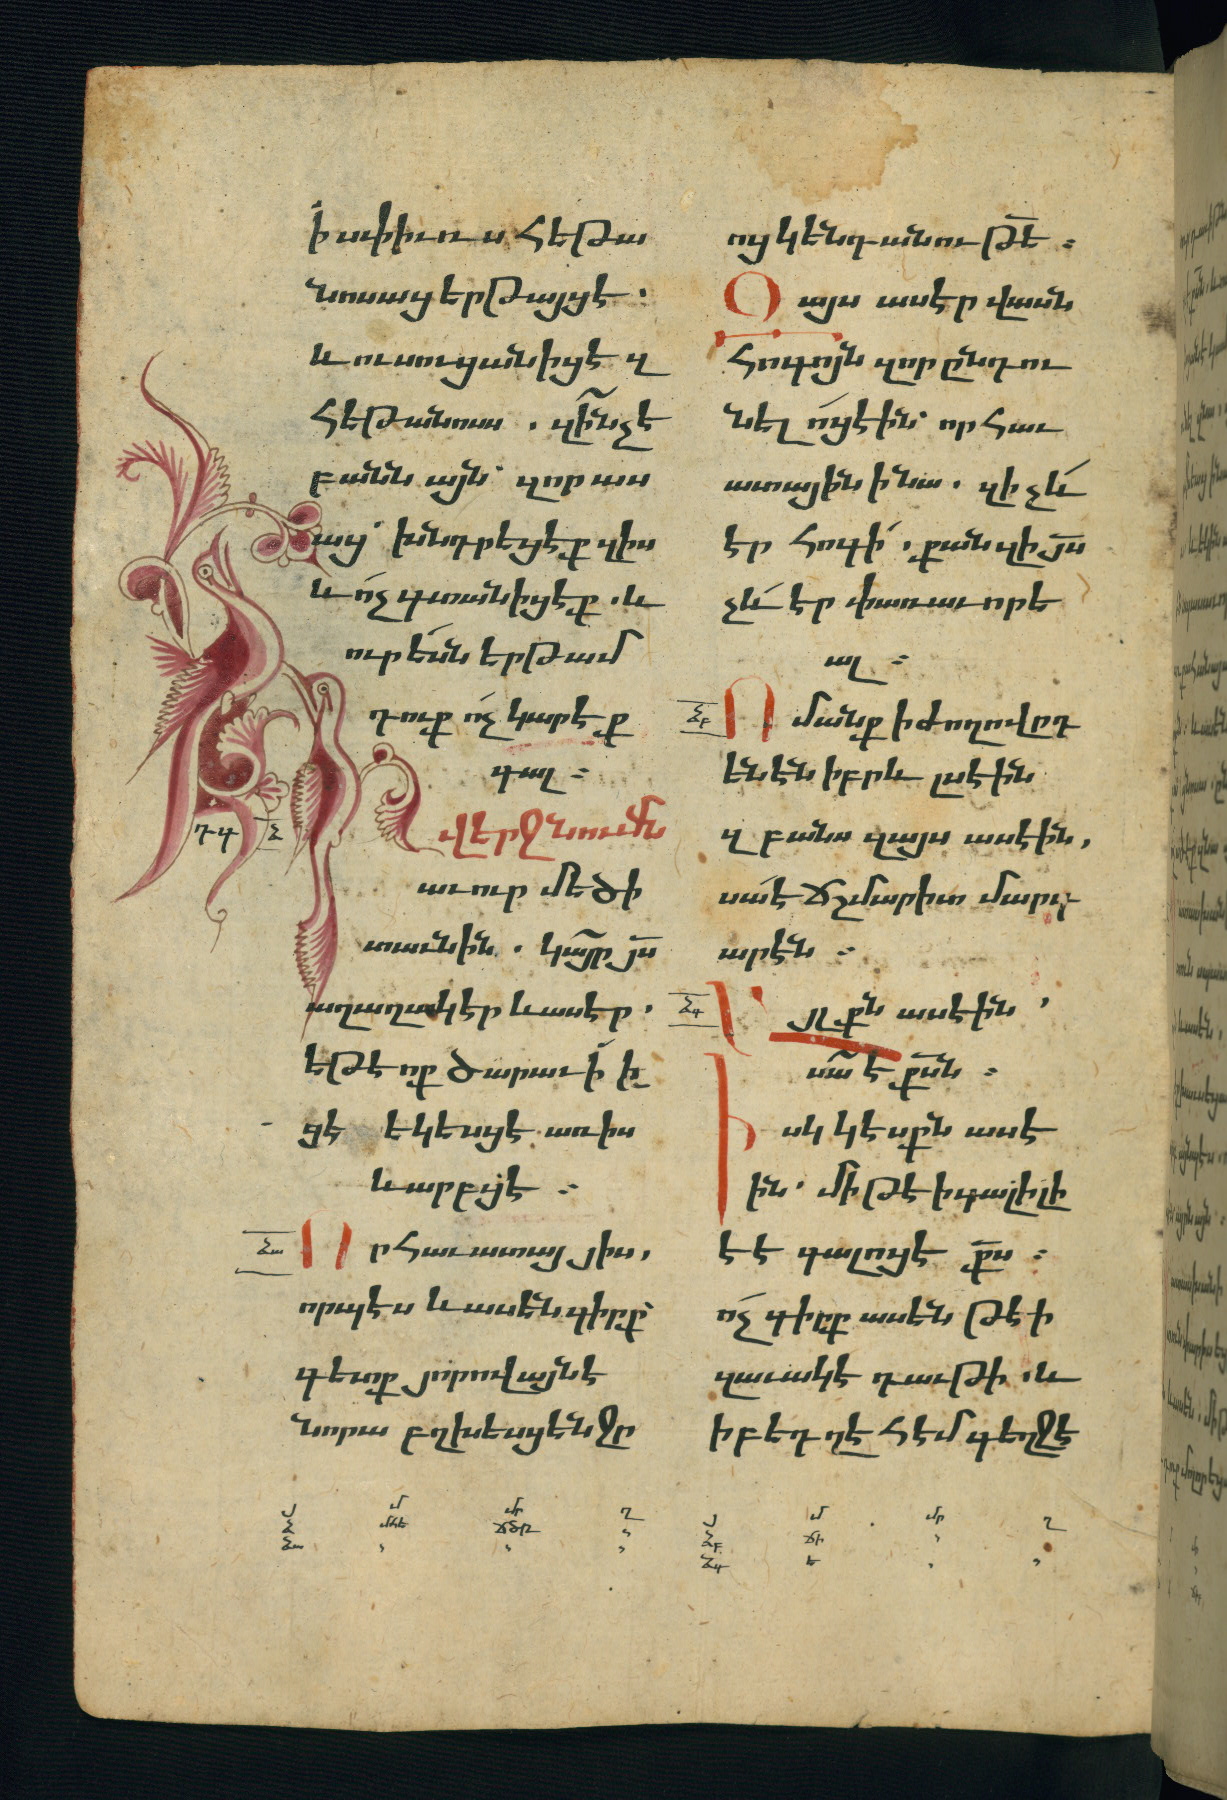 ի սփիւռս հեթա
նոսաց երթայցէ.
և ուսուցանիցէ զ
հեթանոսս. զի՞նչ է
բանն այն՝ զոր աս
աց՝ խնդրեցէք զիս
և ո՛չ գտանիցէք. և
ուր ե՛սն երթամ
դուք ո՛չ կարէք
գալ ։
Ի վերջնումն
աւուր մեծի
տաւնին. կայր յս
աղաղակէր և ասէր.
եթէ ոք ծարաւի ի
ցէ եկեսցէ առ իս
և արբցէ ։
Որ հաւատայ յիս,
որպէս և ասեն գիրք՝
գետք յորովայնէ
նորա բղխեսցեն ջր
ոյ կենդանութե ։
Զայս ասէր վասն
հոգոյն զոր ընդու
նել ո՛ցէին՝ որ հաւ
ատային ի նա. զի չև՛
էր հոգի՛, քանզի յս
չև՛ էր փառաւորե
ալ ։
Ոմանք ի ժողովրդ
ենէն իբրև լսէին
զբանս զայս ասէին,
սա՛ է ճշմարիտ մարգ
արէն ։
Այլքն ասէին՝
սա է քսն ։
Իսկ կէսքն ասէ
ին՝ միթէ ի գալիլե
է է գալոց է քս ։
ո՛չ գիրք ասեն թէ ի
զաւակէ դաւթի. և
ի բեդղէհէմ գեղջէ